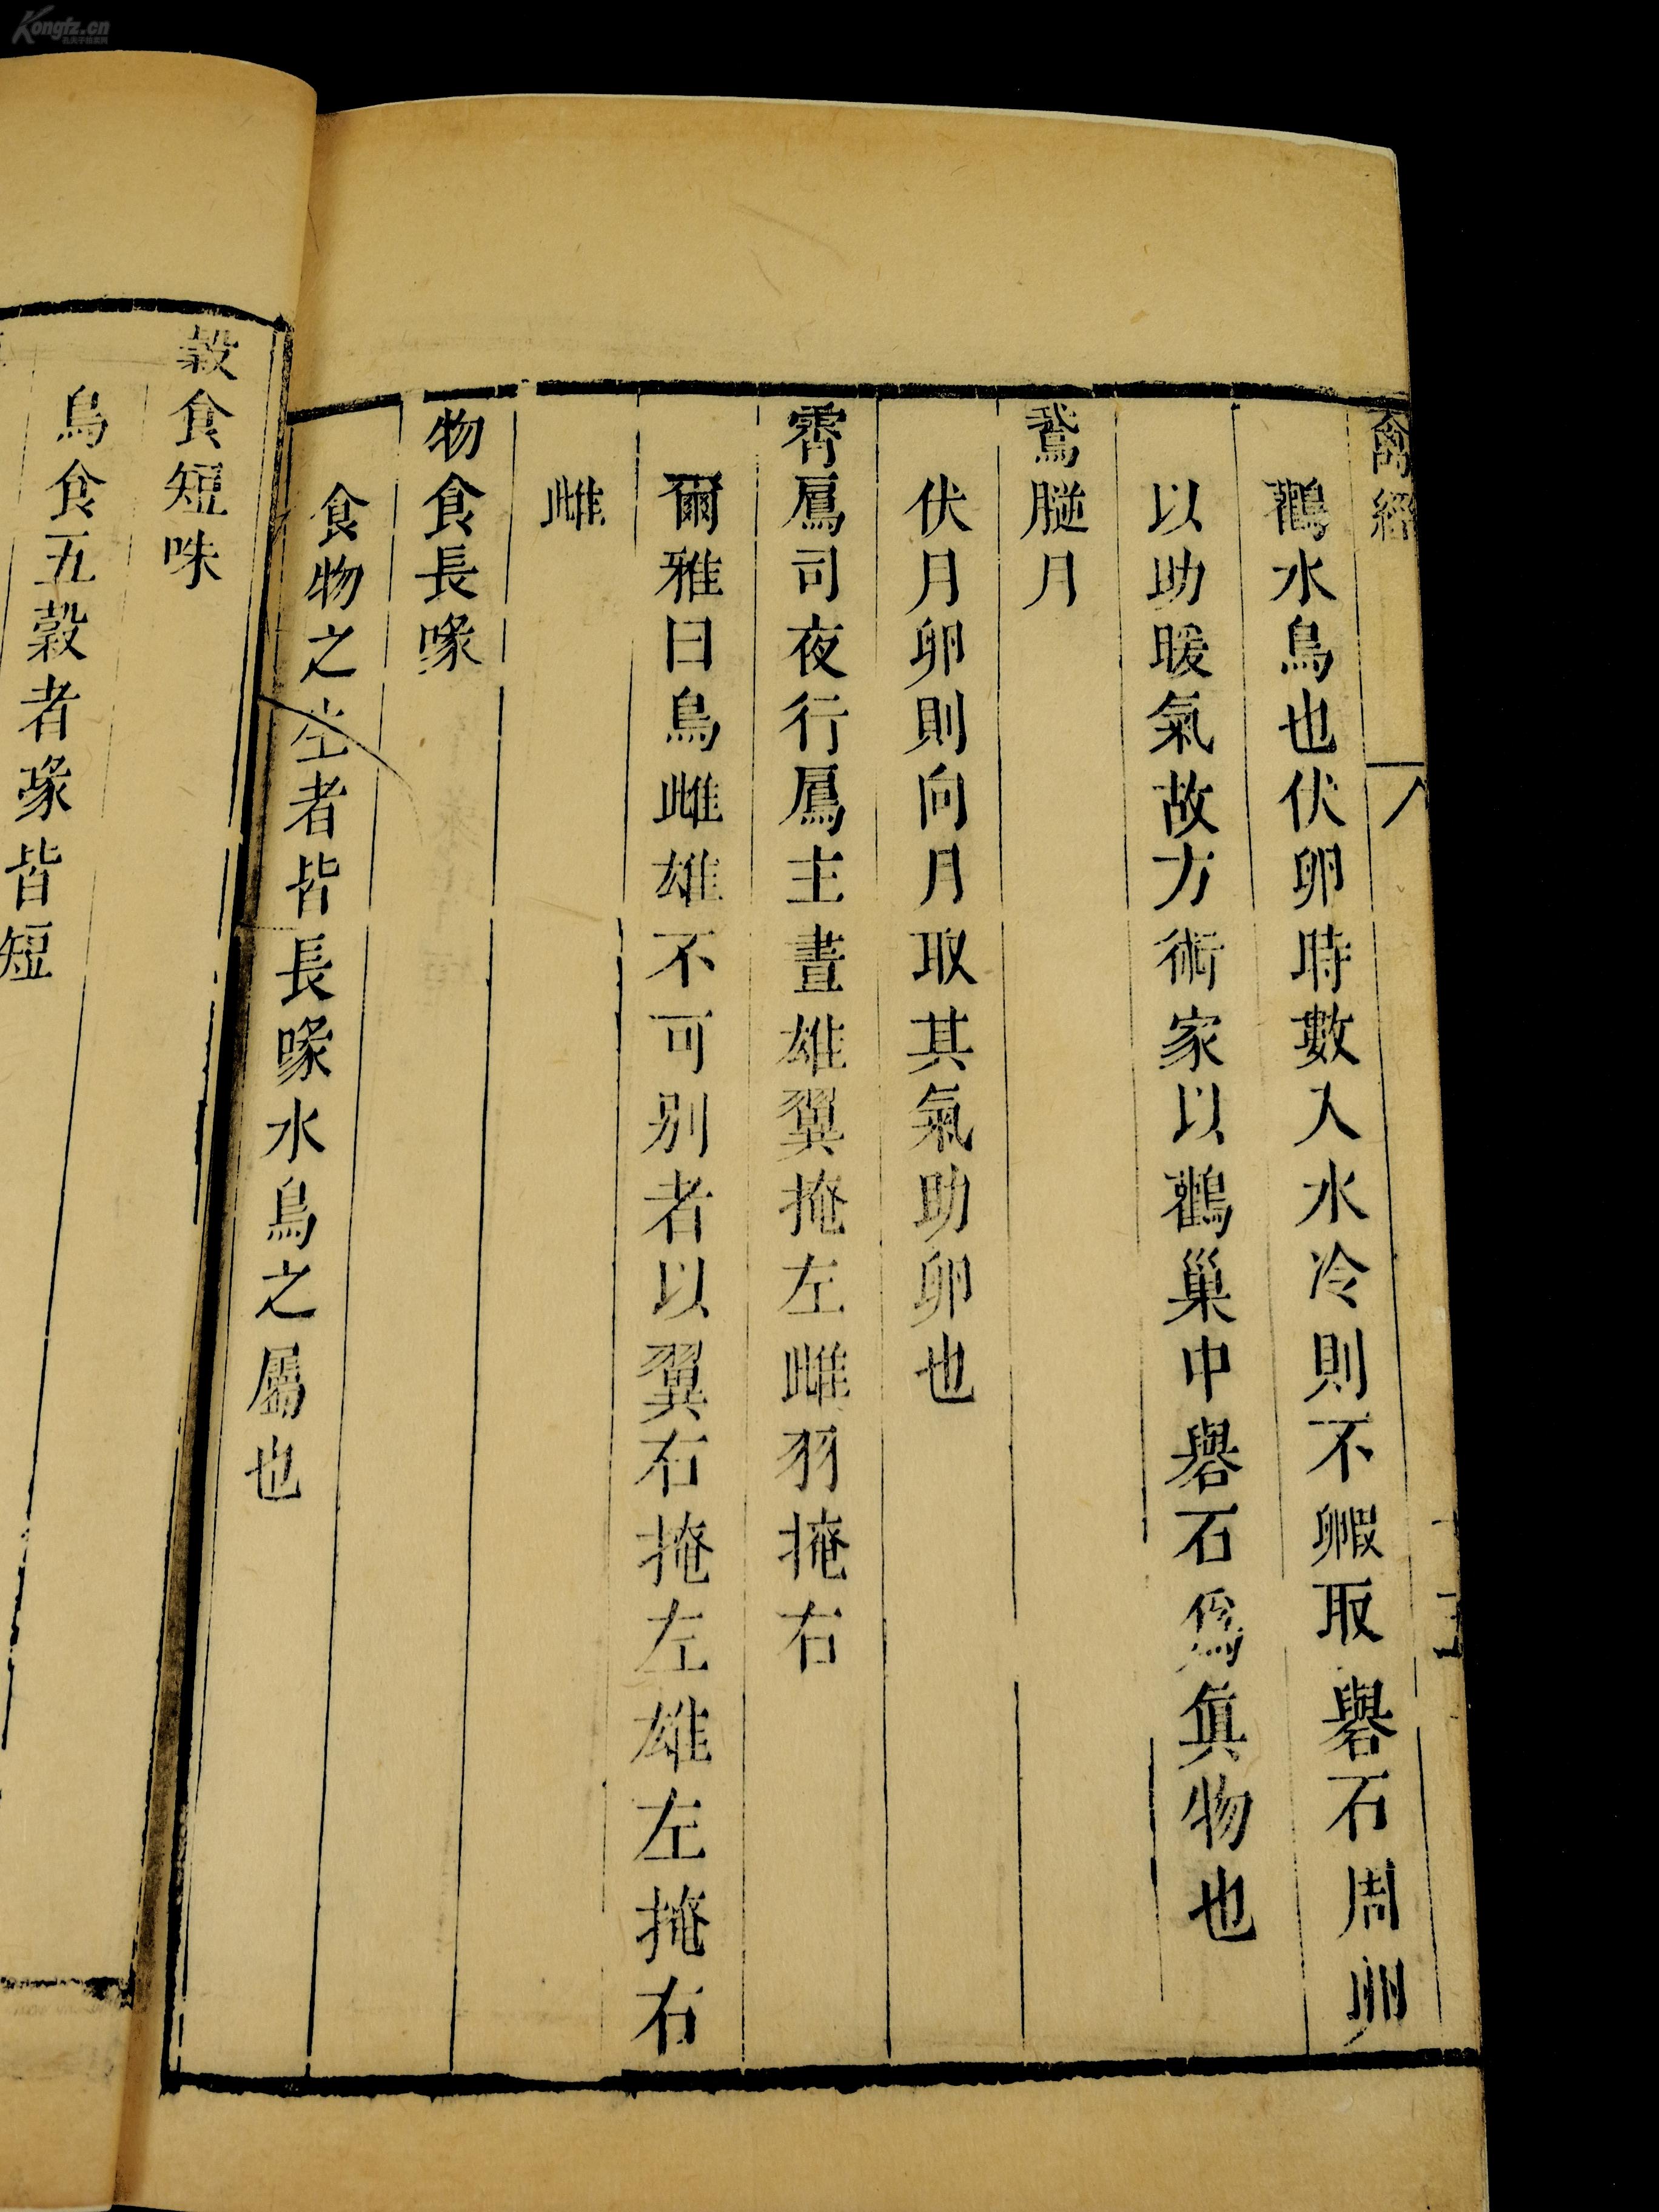 禽經
鸛水鳥也伏卵時數入水冷則不毈取礜石周卵
以助暖氣故方術家以鸛巢中礜石爲眞物也
鵞䏶月
伏月卵則向月取其氣助卵也
鳫司夜行鳫主晝雄翼掩左雌羽掩右
爾雅曰鳥雌雄不可別者以翼右掩左雄左掩右
雌
物食長喙
食物之生者皆長喙水鳥之屬也
穀食短咮
鳥食五穀者喙皆短
Kongfz.cn
孔夫子旧书网